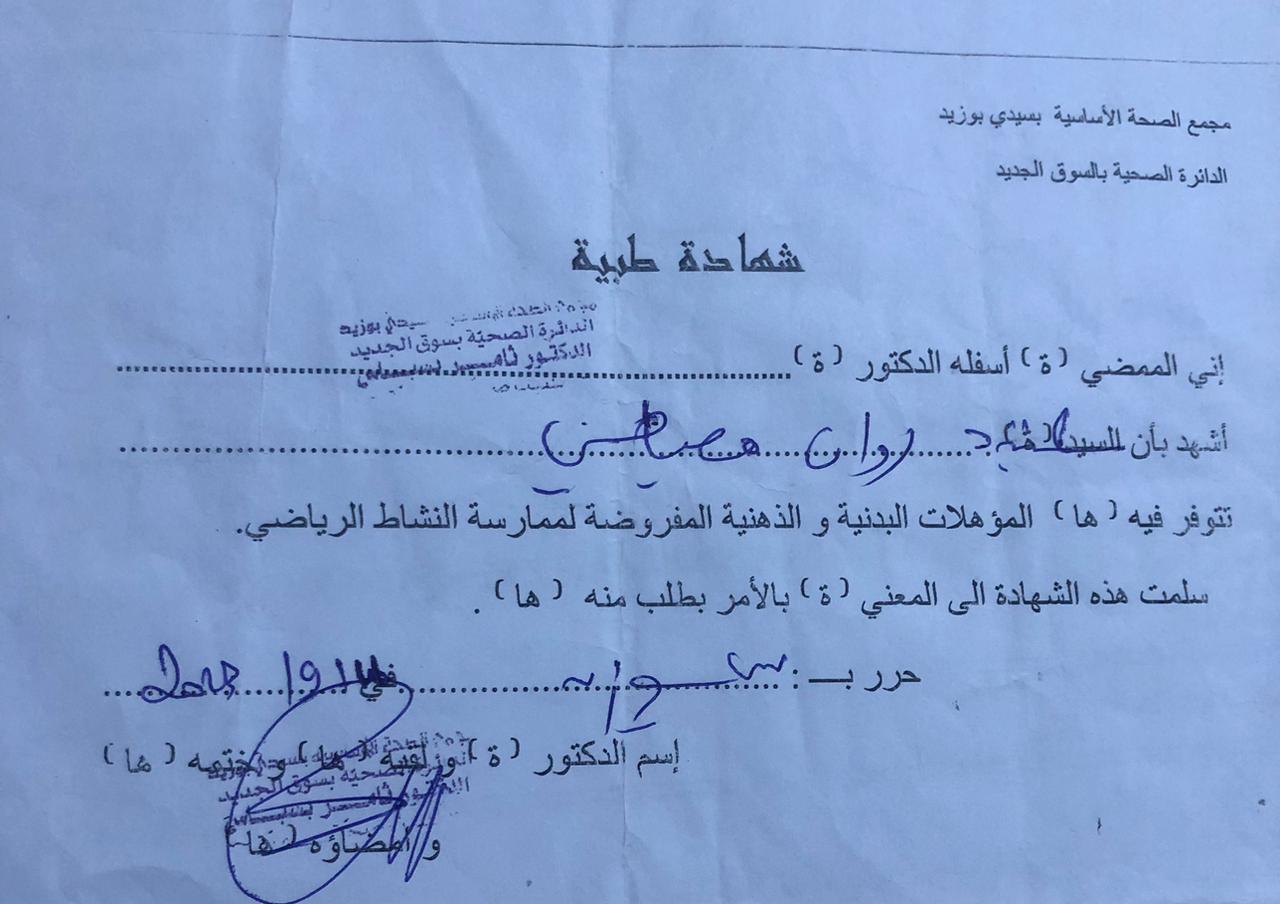 مجمع الصحة الأساسية بسيدي بوزيد
الدائرة الصحية بالسوق الجديد
شهادة طبية
سيدي بوزيد
الدائرة الصحية بسوق الجديد
الدكتور ثامر
إني الممضي (ة) أسفله الدكتور (ة)
أشهد بأن السيد (ة) روان
تتوفر فيه (ها) المؤهلات البدنية و الذهنية المفروضة لممارسة النشاط الرياضي.
سلمت هذه الشهادة الى المعني (ة) بالأمر بطلب منه (ها).
حرر بـ : في
إسم الدكتور (ة) ولقبه (ها) وختمه (ها)
و إمضاؤه (ها)